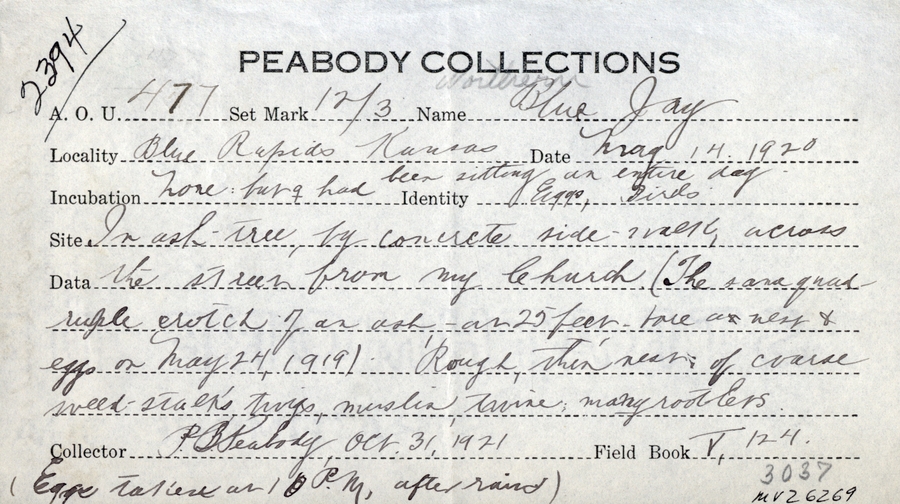 2394
PEABODY COLLECTIONS
Northern
A. O. U. 477 Set Mark 12/3 Name Blue Jay
Locality Blue Rapids Kansas Date May 14. 1920
Incubation None: but ♀ had been sitting an entire day.
Identity Eggs, Birds
Site In ash-tree, by concrete side-walk, across
Data the street from my Church. (The same quad-
ruple crotch of an ash,-at 25 feet- bore a nest &
eggs on May 24, 1919). Rough, thin nest: of coarse
weed-stalks, twigs, muslin, twine; many rootlets.
Collector P. B. Peabody, Oct. 31, 1921 Field Book V, 124.
(Eggs taken at 1 P. M., after rain)
3037
MVZ 6269